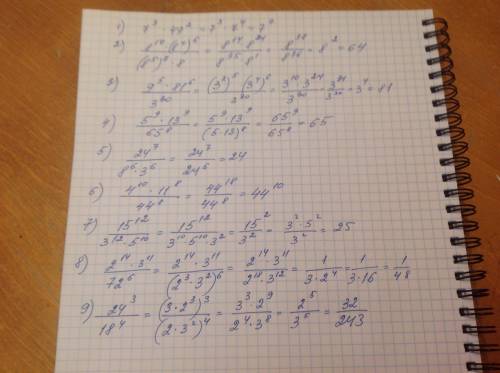 1) 7³ · 49² = 7³ · 7⁴ = 7⁷
2) (8¹⁴ · (8⁴)⁶)/((8⁵)⁷ · 8) = (8¹⁴ · 8²⁴)/(8³⁵ · 8¹) = 8³⁸/8³⁶ = 8² = 64
3) (9⁵ · 81⁶)/3³⁰ = ((3²)⁵ · (3⁴)⁶)/3³⁰ = (3¹⁰ · 3²⁴)/3³⁰ = 3³⁴/3³⁰ = 3⁴ = 81
4) (5⁹ · 13⁹)/65⁸ = (5⁹ · 13⁹)/(5 · 13)⁸ = 65⁹/65⁸ = 65
5) 24⁷/(8⁶ · 3⁶) = 24⁷/24⁶ = 24
6) (4¹⁰ · 11⁸)/44⁸ = 44¹⁸/44⁸ = 44¹⁰
7) 15¹²/(3¹² · 5¹⁰) = 15¹²/(3¹⁰ · 5¹⁰ · 3²) = 15²/3² = (3² · 5²)/3² = 25
8) (2¹⁴ · 3¹¹)/72⁶ = (2¹⁴ · 3¹¹)/(2³ · 3²)⁶ = (2¹⁴ · 3¹¹)/(2¹⁸ · 3¹²) = 1/(3 · 2⁴) = 1/(3 · 16) = 1/48
9) 24³/18⁴ = (3 · 2³)³/(2 · 3²)⁴ = (3³ · 2⁹)/(2⁴ · 3⁸) = 2⁵/3⁵ = 32/243